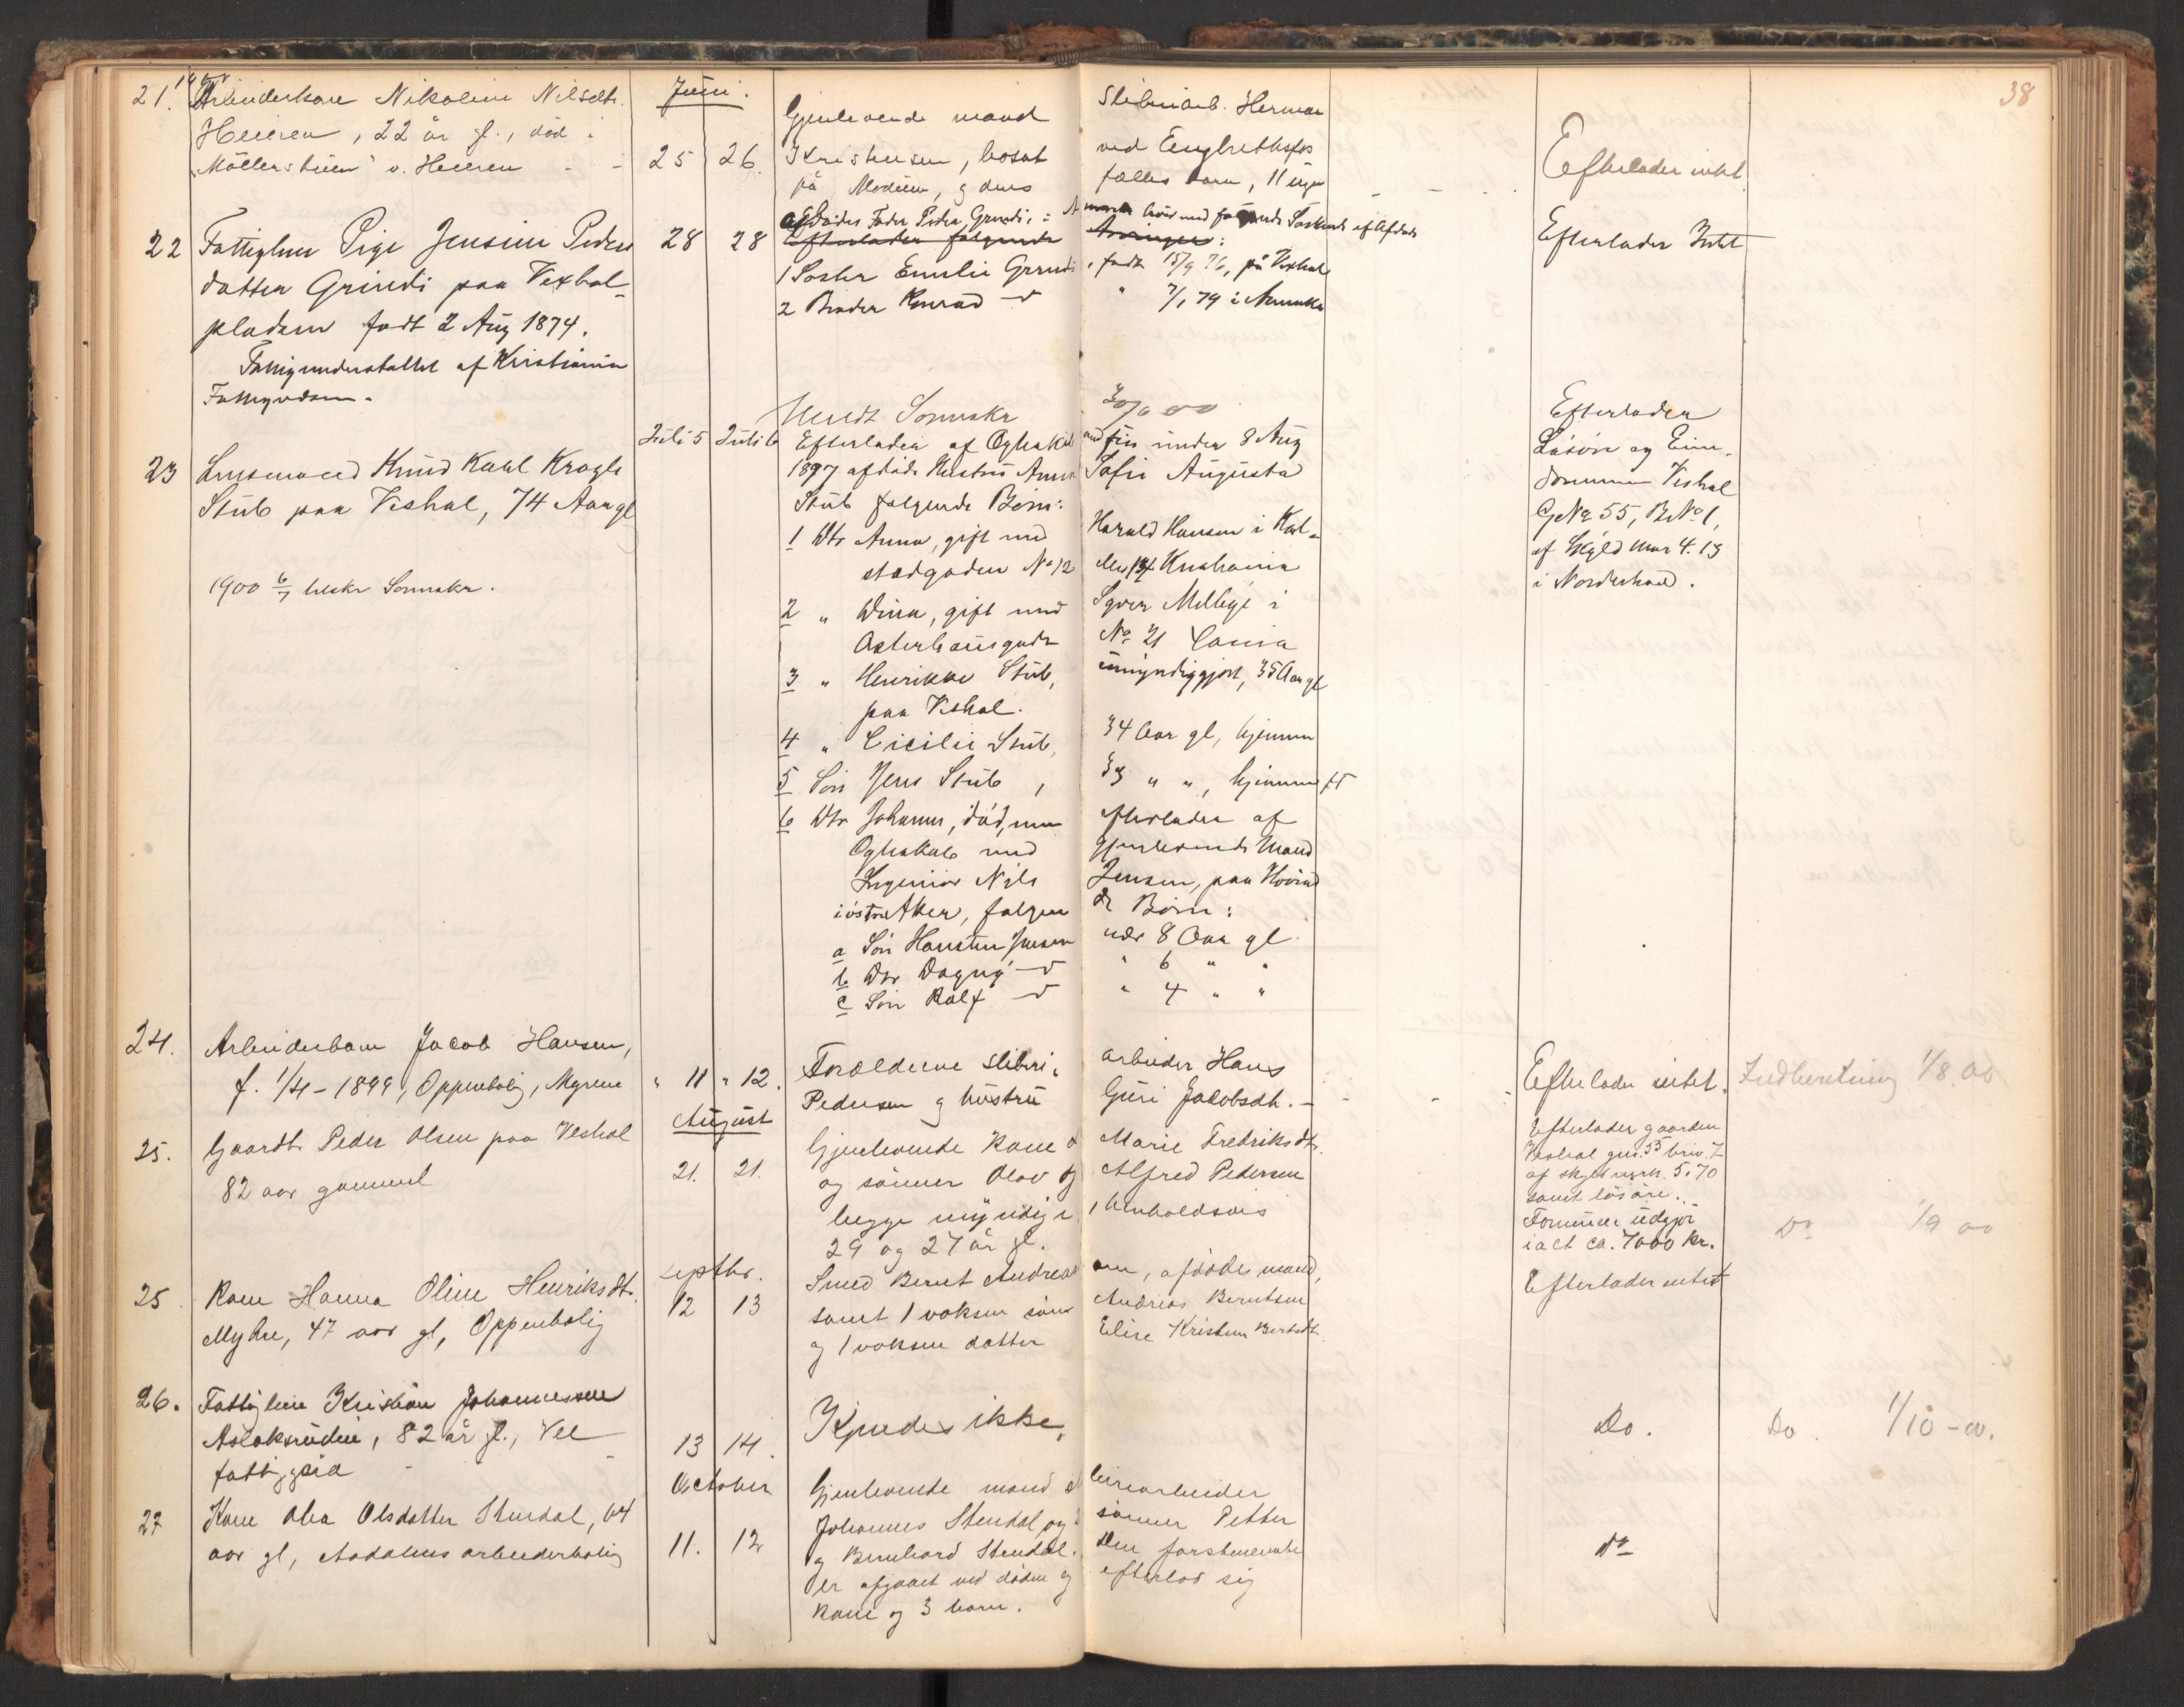 38
21. Arbeiderkone Nikoline Nilsdtr.
Heieren, 22 år gl., död i
"Möllerstuen" v. Heieren
Juni.
25 26.
Gjenlevende mand Sliberiarb. Herman
Kristensen, bosat ved Engbrethsfos
på Modum, og deres fælles barn, 11 uger
Efterlader intet
22 Fattiglem Pige Jensine Peders
datter Grindi paa Vexhal-
pladsen født 2 Aug 1874.
Fattigunderstøttet af Kristiania
Fattigvæsen.
28 28
afdødes Fader Peder Grindi, i
Efterlader følgende Arvinger:
1 Søster Emilie Grindi, født 15/9 76, på Vexhal
2 Broder Konrad " 7/1 79 i Amerika
Efterlader Intet
23 Lensmand Knud Karl Kragh
Stub paa Veshal, 74 Aar gl
1900 6/7 Sonnskr.
Juli 5 Juli 6
Meldt Sornskr 30/6 00
Efterlader af Ægteskab med sin under 8 Aug
1897 afdøde Hustru Anna Sofie Augusta
Stub følgende Børn:
1 Dtr Anna, gift med Harald Hansen i Karl-
stadgaden No 12 Kristiania
2 " Dina, gift med Syver Melbye i
Osterhausgade No 21 Cania
3 " Henrikke Stub, umyndiggjort, 35 Aar gl
paa Veshal.
4 " Cicilie Stub, 34 Aar gl, hjemme
5 Søn Jens Stub, 33 " ", hjemme
6 Dtr Johanne, død, men efterlader af
Ægteskab med gjenlevende Mand
Ingeniør Nils Jensen, paa Hovind
i østre Aker, følgende Børn:
a Søn Harsten Jensen nær 8 Aar gl.
b Dtr Dagny " 6 " "
c Søn Rolf " 4 " "
Efterlader
Løsøre og Eien-
dommen Veshal
GNo 55, BNo 1,
af Skyld Mar 4.13
i Norderhov.
24. Arbeiderbarn Jacob Hansen,
f. 1/4-1899, Oppenbolig, Myrene
" 11 " 12.
Forældrene sliberi- arbeider Hans
Pedersen og hustru Guri Jacobsdtr.
Efterlader intet. Indberetning 1/8 00
25. Gaardbr. Peder Olsen paa Veshal
82 aar gammel
August
21. 21.
Gjenlevende Kone Marie Fredriksdtr.
og sønner Olav og Alfred Pedersen
begge myndige, henholdsvis
29 og 27 år gl.
Efterlader gaarden
Veshal gno. 55 brno. 7
af skyld mrk. 5.70
samt løsøre.
Formuen udgjør
ialt ca. 7000 kr.
Do 1/9 00
25 Kone Hanna Oline Henriksdtr.
Myhre, 47 aar gl, Oppenbolig
septbr.
12 13
Smed Bernt Andreassen, afdødes mand,
samt 1 voksen søn Andreas Berntsen
og 1 voksen datter Elise Kristine Berntsdt.
Efterlader intet
26. Fattiglem Kristian Johannessen
Aslaksrudeie, 82 år gl., Vee
fattiggård
13 14.
Kjendes ikke.
Do. Do. 1/10-00.
27 Kone Olea Olsdatter Stendal, 64
aar gl, Aadalens arbeiderbolig
October
11. 12
Gjenlevende mand sliberiarbeider
Johannes Stendal og sønner Petter
og Bernhard Stendal. Den førstnævnte
er afgaaet ved døden og efterlod sig
kone og 3 barn.
Do